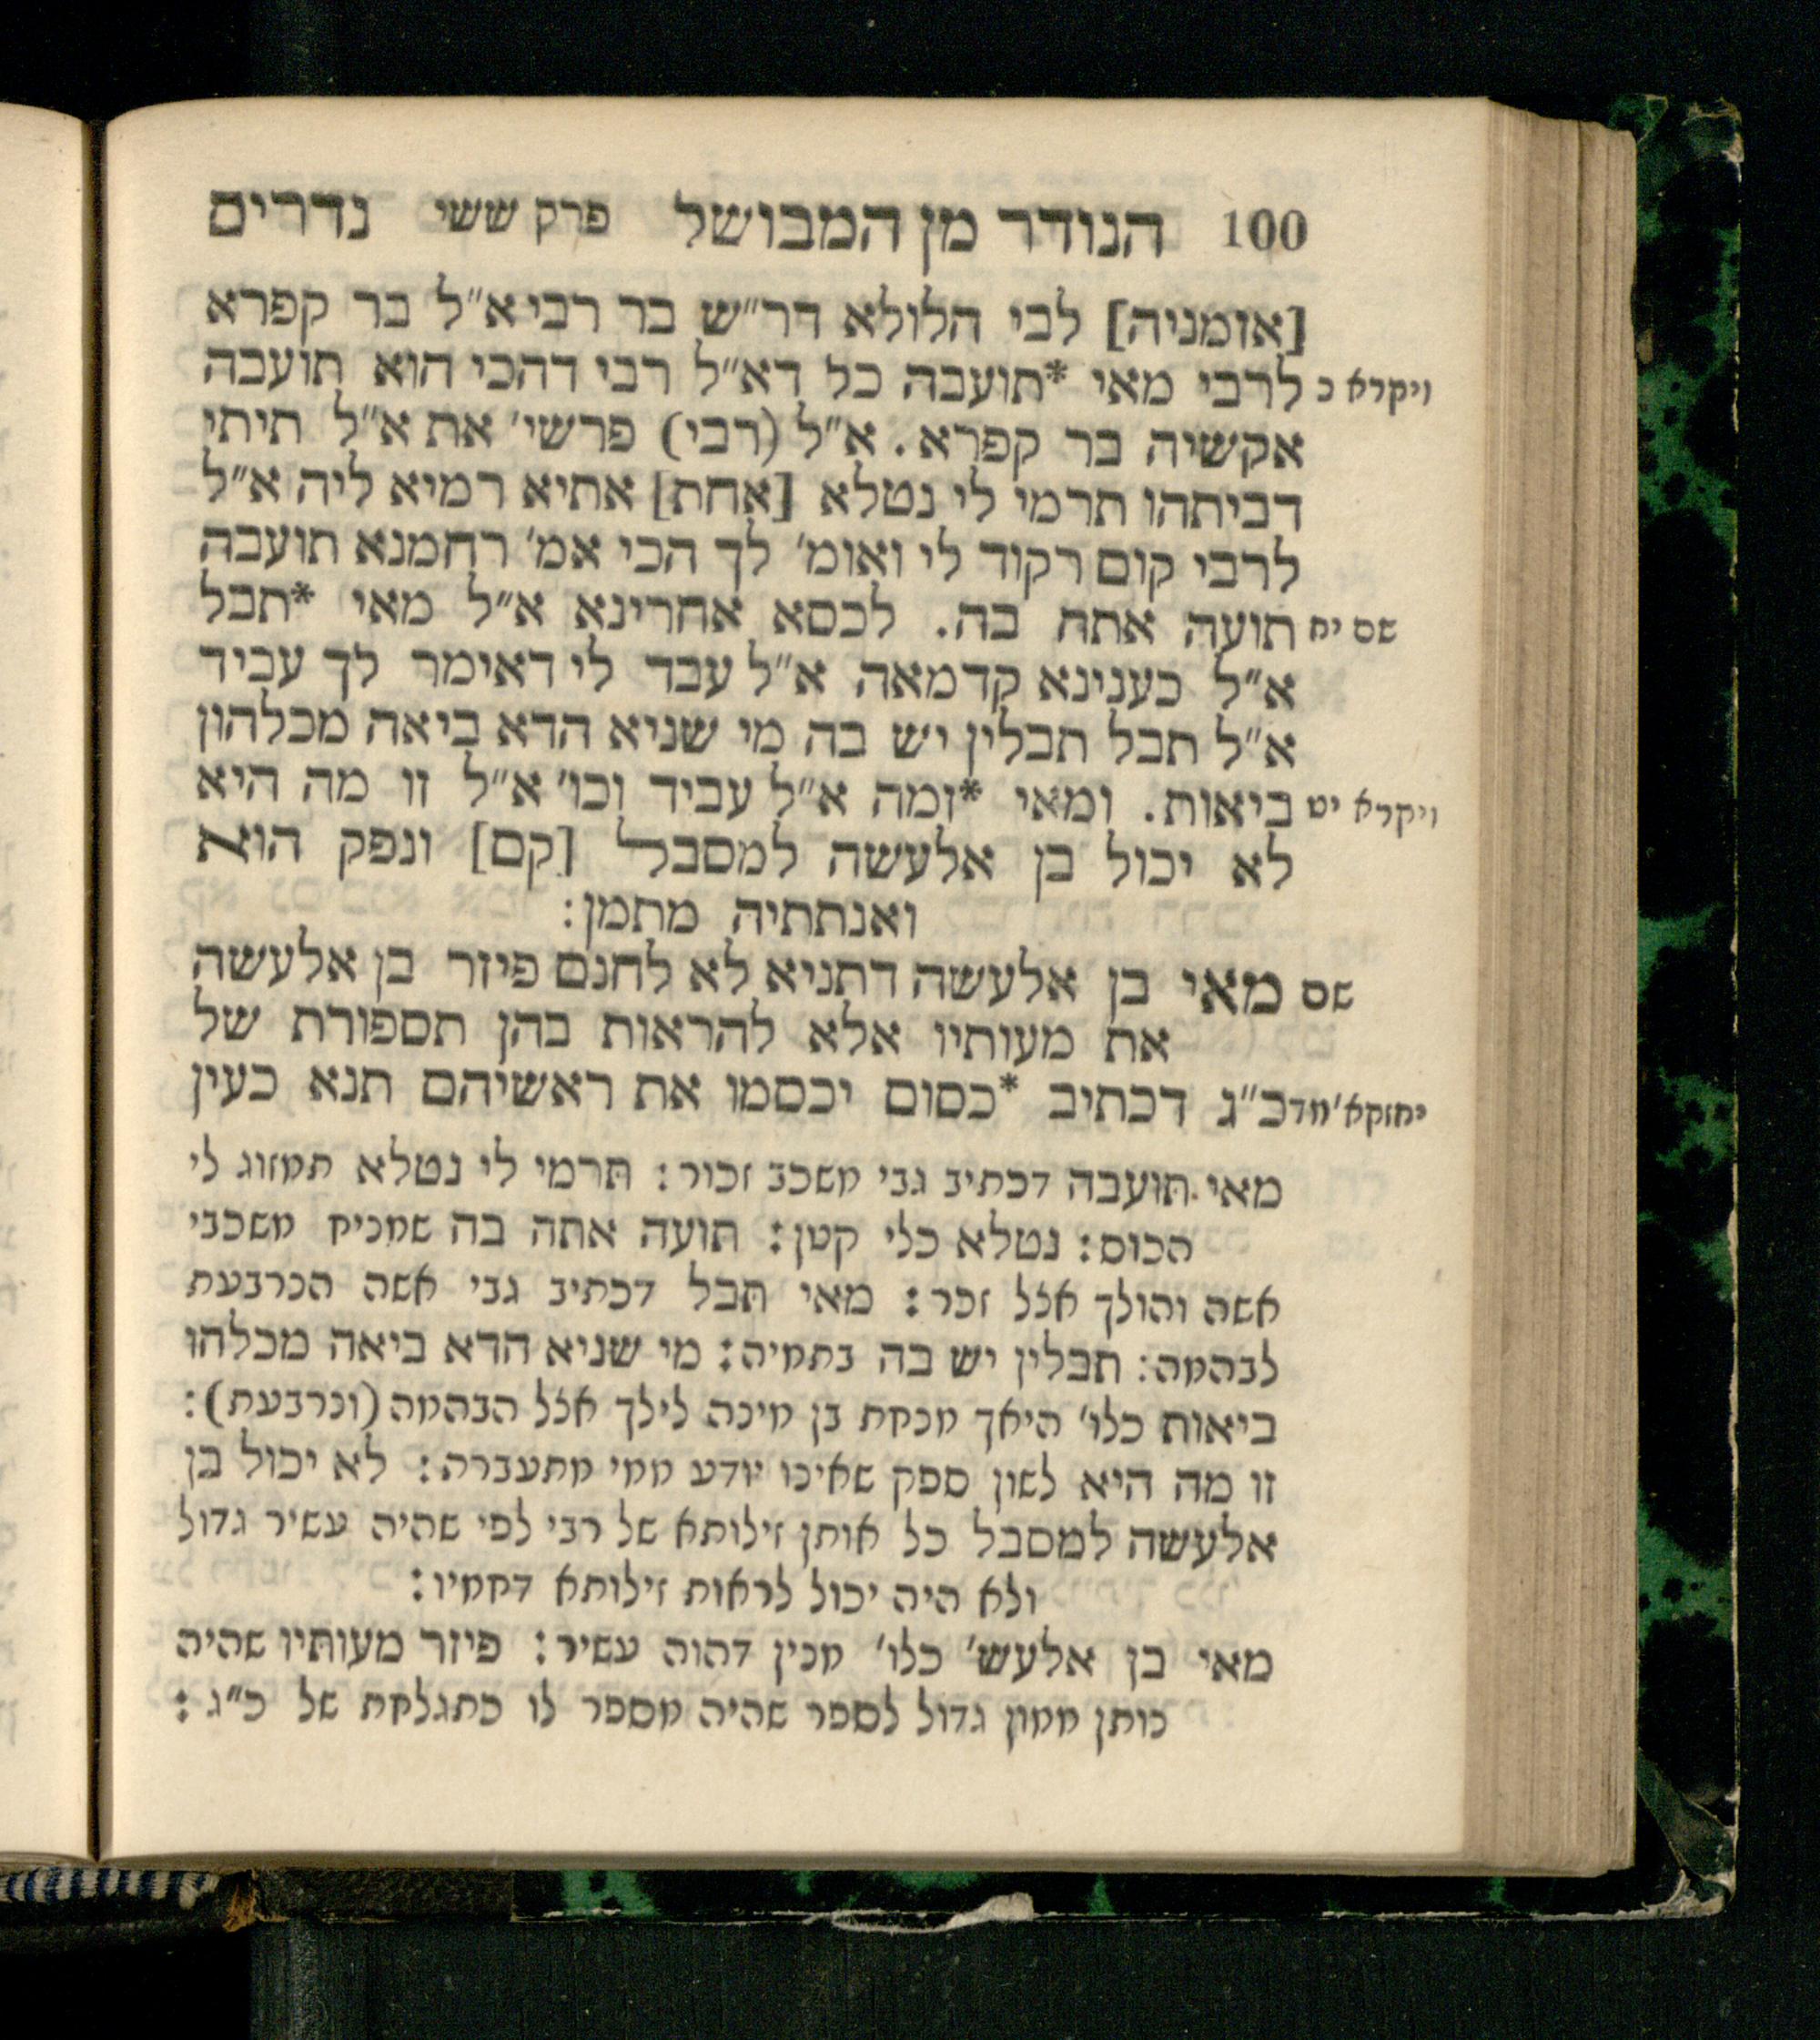 100 הנודר מן המבושל פרק ששי נדרים
[אומניה] לבי הלולא דר״ש בר רבי א״ל בר קפרא
ויקרא כ לרבי מאי *תועבה כל דא״ל רבי דהכי הוא תועבה
אקשיה בר קפרא. א״ל (רבי) פרשי׳ את א״ל תיתי
דביתהו תרמי לי נטלא [אחת] אתיא רמיא ליה א״ל
לרבי קום רקוד לי ואומ׳ לך הכי אמ׳ רחמנא תועבה
שם יח תועה אתה בה. לכסא אחרינא א״ל מאי *תבל
א״ל כענינא קדמאה א״ל עבד לי דאימר לך עביד
א״ל תבל תבלין יש בה מי שניא הדא ביאה מכלהון
ויקרא יט ביאות. ומאי *זמה א״ל עביד וכו׳ א״ל זו מה היא
לא יכול בן אלעשה למסבל [קם] ונפק הוא
ואנתתיה מתמן:
שם מאי בן אלעשה דתניא לא לחנם פיזר בן אלעשה
את מעותיו אלא להראות בהן תספורת של
יחזקא׳ מד כ״ג דכתיב *כסום יכסמו את ראשיהם תנא כעין
מאי תועבה דכתיב גבי משכב זכור: תרמי לי נטלא תמזוג לי
הכוס: נטלא כלי קטן: תועה אתה בה שמניח משכבי
אשה והולך אצל זכר: מאי תבל דכתיב גבי אשה הנרבעת
לבהמה: תבלין יש בה בתמיה: מי שניא הדא ביאה מכלהו
ביאות כלו׳ היאך מנחת בן מינה לילך אצל הבהמה (ונרבעת):
זו מה היא לשון ספק שאינו יודע ממי מתעברה: לא יכול בן
אלעשה למסבל כל אותן זילותא של רבי לפי שהיה עשיר גדול
ולא היה יכול לראות זילותא דחמיו:
מאי בן אלעש׳ כלו׳ מנין דהוה עשיר: פיזר מעותיו שהיה
נותן ממון גדול לספר שהיה מספר לו כתגלחת של כ״ג: